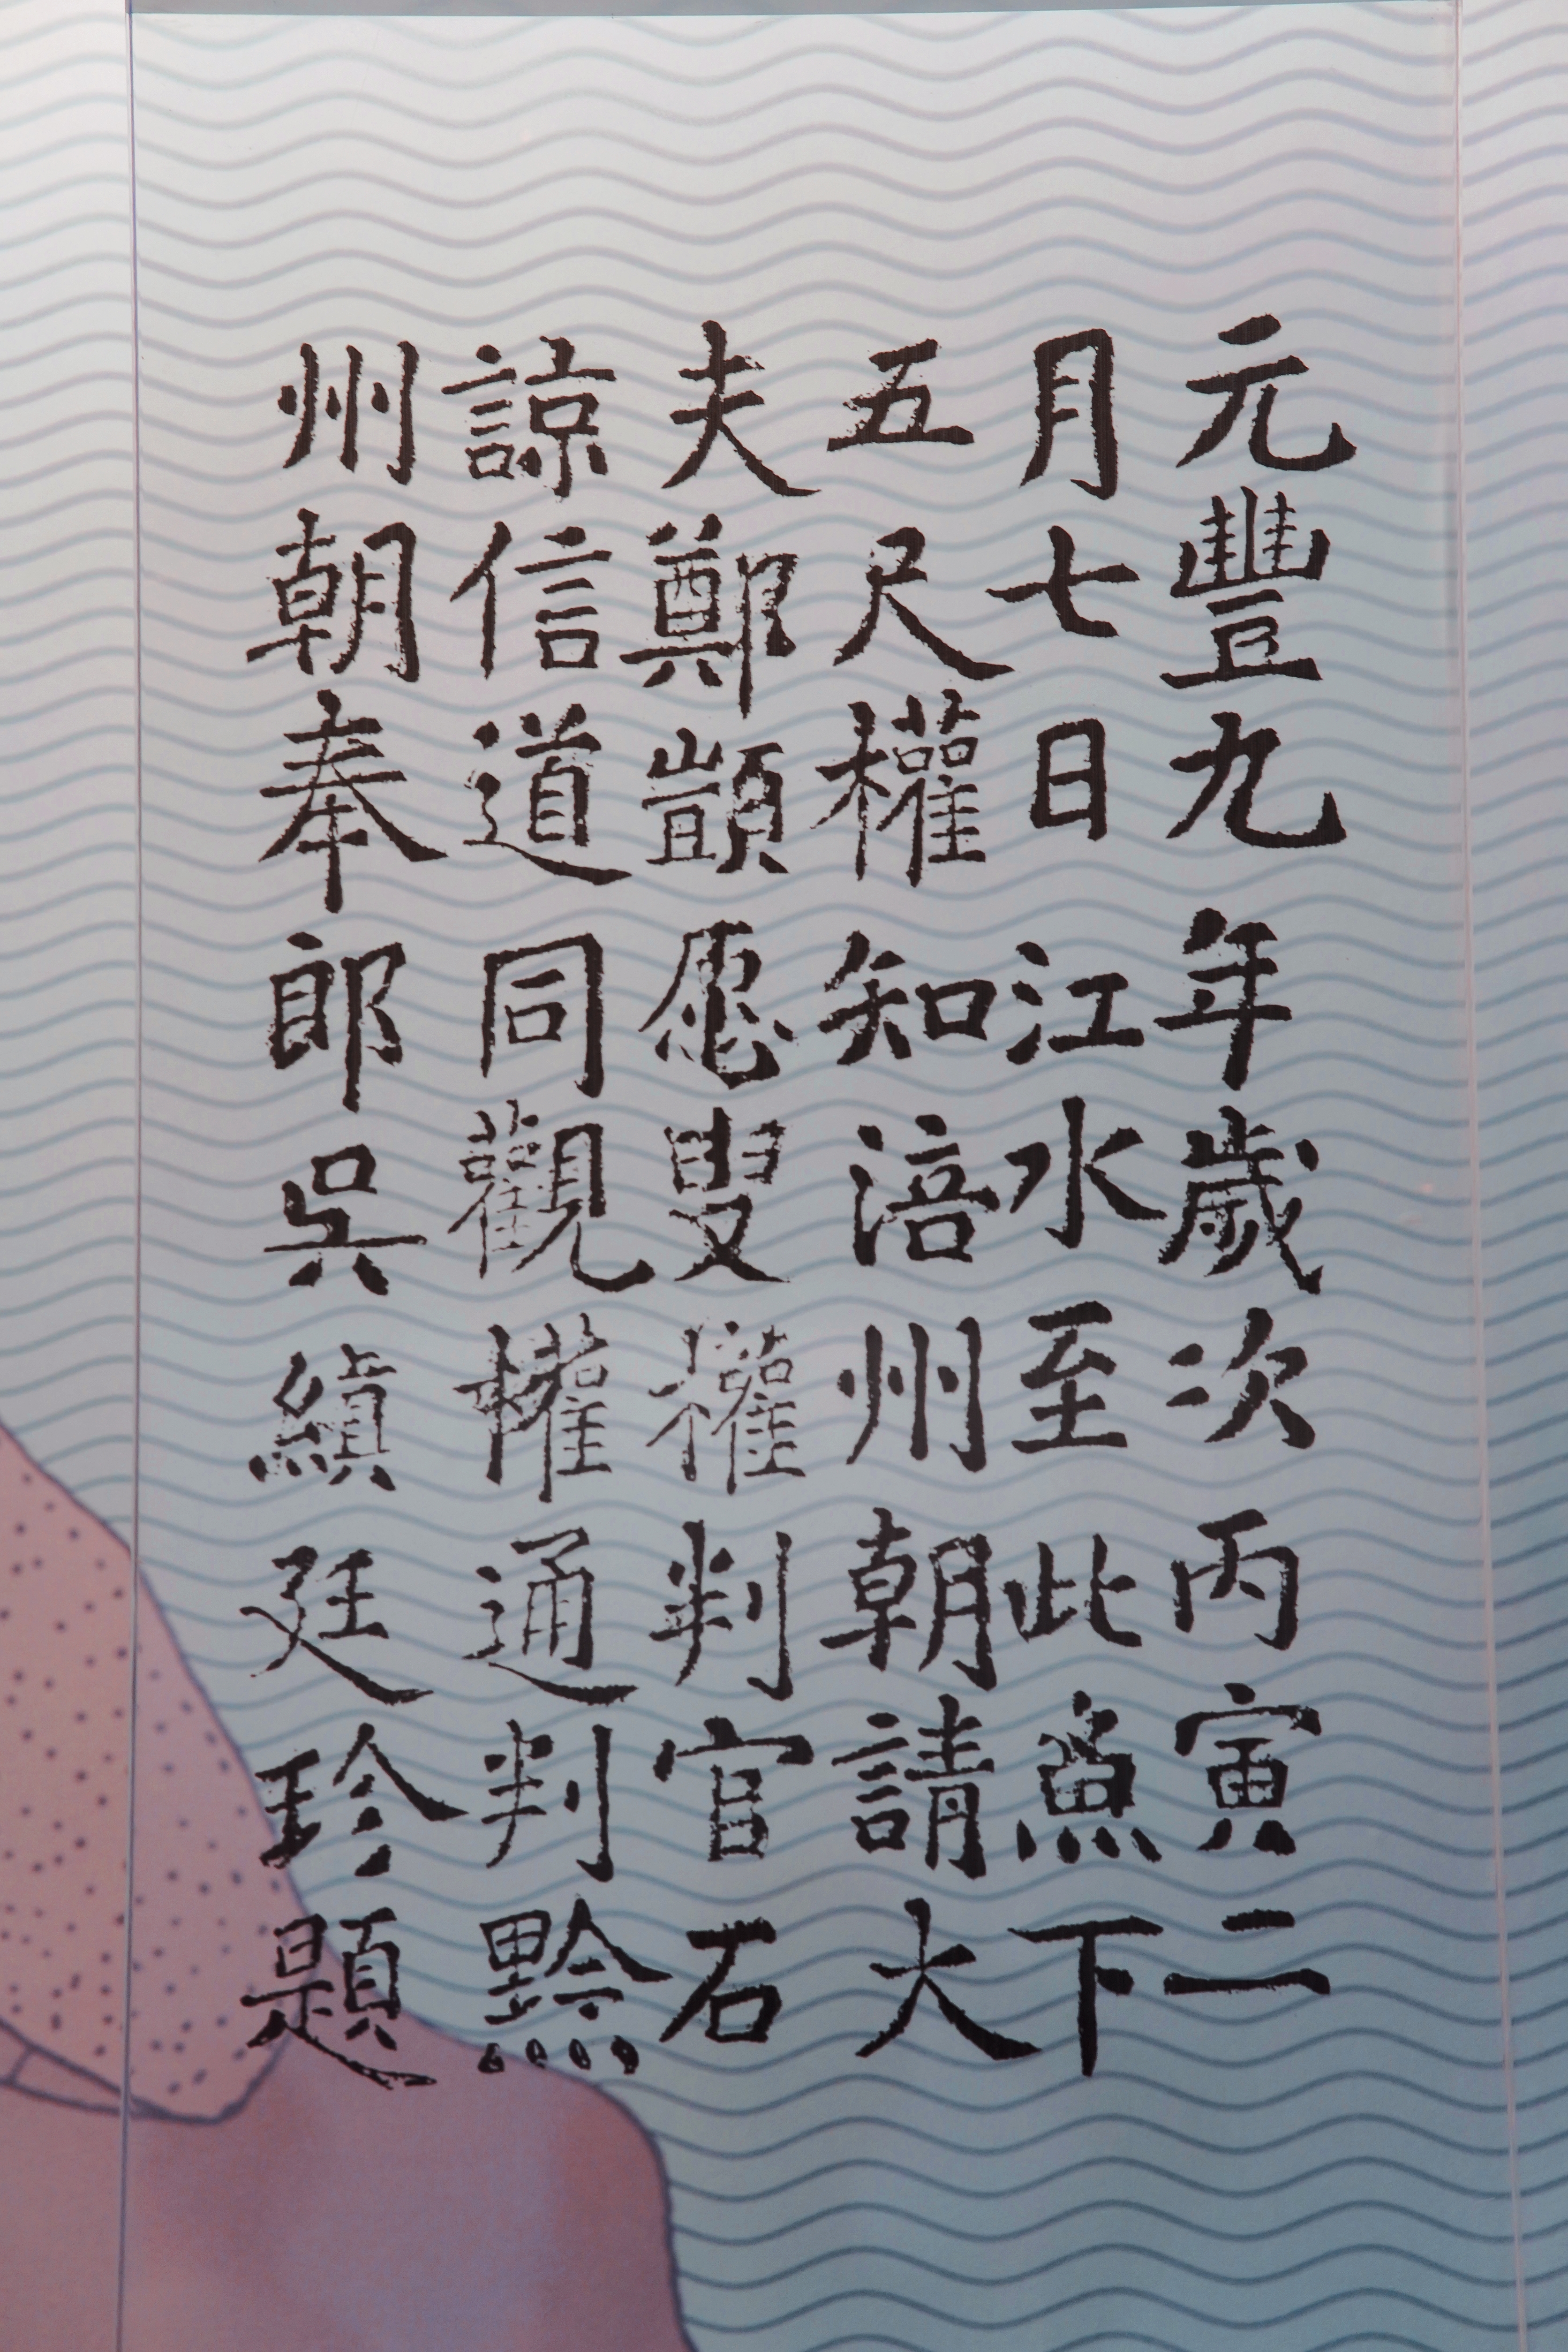 元豐九年歲次丙寅二
月七日江水至此魚下
五尺權知涪州朝請大
夫鄭顗愿叟權判官石
諒信道同觀權通判黔
州朝奉郎吳縝廷珍題